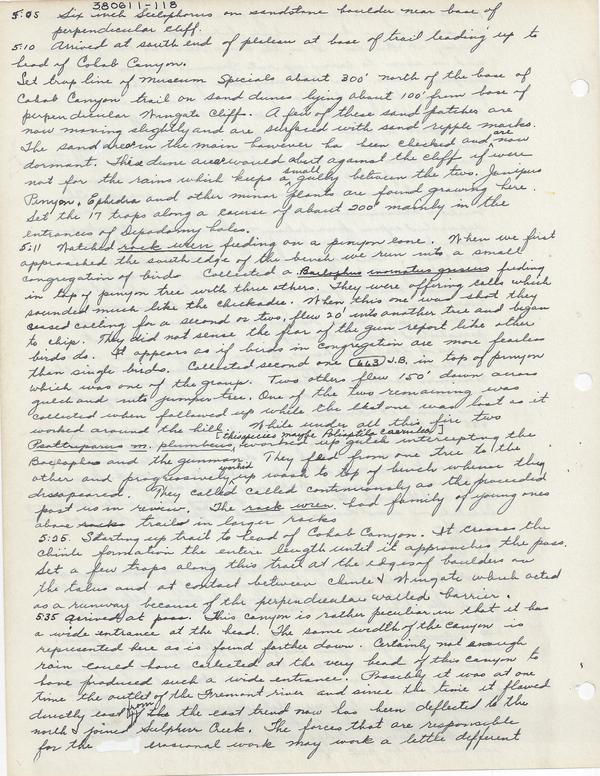 380611-118
5:05 Six inch Sceloporus on sandstone boulder near base of
perpendicular cliff.
5:10 Arrived at south end of plateau at base of trail leading up to
head of Cohab Canyon.
Set trap line of Museum Specials about 300' north of the base of
Cohab Canyon trail on sand dunes lying about 100' from base of
perpendicular Wingate Cliff. A few of these sand patches are
now moving slightly and are surfaced with sand ripple marks.
The sand area in the main however has been checked and are now
dormant. This dune area would abut against the cliff if were
not for the rains which keeps a small gulley between the two. Junipers
Pinyon, Ephedra and other minor plants are found growing here.
Set the 17 traps along a course of about 200' mainly in the
entrances of Dipodomy holes.
5:11 Watched rock wren feeding on a pinyon cone. When we first
approached the south edge of the bench we run into a small
congregation of birds Collected a Baeolophus inornatus griseus feeding
in top of pinyon tree with three others. They were offering calls which
sounded much like the chickadee. When this one was shot they
ceased calling for a second or two, flew 20' into another tree and began
to chip. They did not sense the fear of the gun report like other
birds do. It appears as if birds in congregation are more fearless
than single birds. Collected second one (443) J.B. in top of pinyon
which was one of the group. Two others flew 150' down across
gulch and into juniper tree. One of the two remaining was
collected when followed up while the last one was lost as it
worked around the hill. While under all this fire two
[this species maybe Polioptila caerulea]
Psaltriparus m. plumbeus, worked up gulch intercepting the
Baeolophus and the gunman. They fled from one tree to the
other and progressively worked up wash to top of bench whence they
disappeared. They called called continuously as the proceeded
past us in review. The rock wren had family of young ones
above rocks trail in larger rocks
5:25. Starting up trail to head of Cohab Canyon. It crosses the
chinle formation the entire length until it approaches the pass.
Set a few traps along this trail at the edges of boulders on
the talus and at contact between chinle & Wingate which acted
as a runway because of the perpendicular walled barrier.
5:35 arrived at pass. This canyon is rather peculiar in that it has
a wide entrance at the head. The same width of the canyon is
represented here as is found farther down. Certainly not enough
rain could have collected at the very head of this canyon to
have produced such a wide entrance. Possibly it was at one
time the outlet of the Fremont river and since the time it flowed
directly east from the the east trend now has been deflected to the
north & joined Sulphur Creek. The forces that are responsible
for the erosional work may work a little different